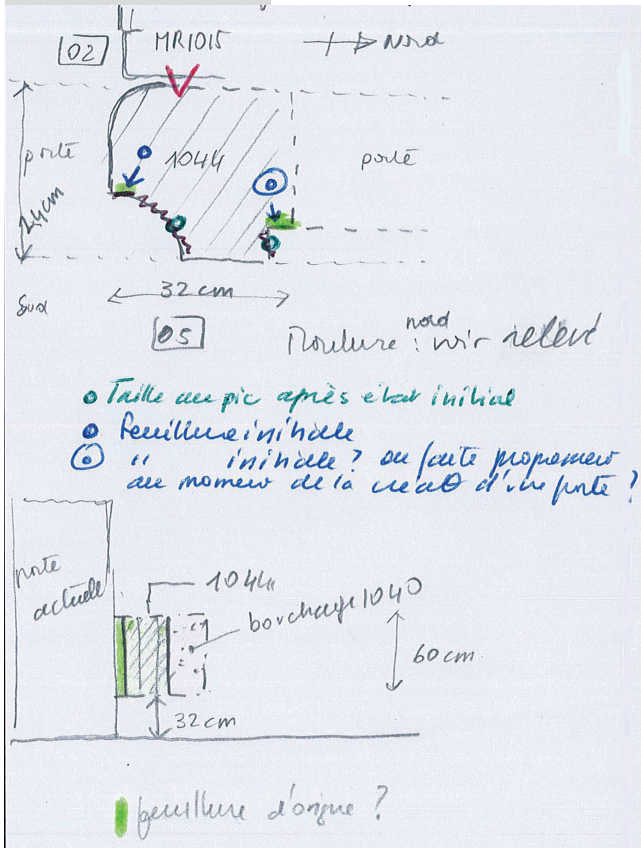 02
MR1015
Nord
porte
1044
porte
24cm
32 cm
Sud
05
Moulure nord : voir relevé
Taille au pic après état initial
feuillure initiale
" initiale ? ou faite proprement
au moment de la créat° d'une porte ?
porte
actuelle
1044
bouchage 1040
60 cm
32 cm
feuillure d'origine ?